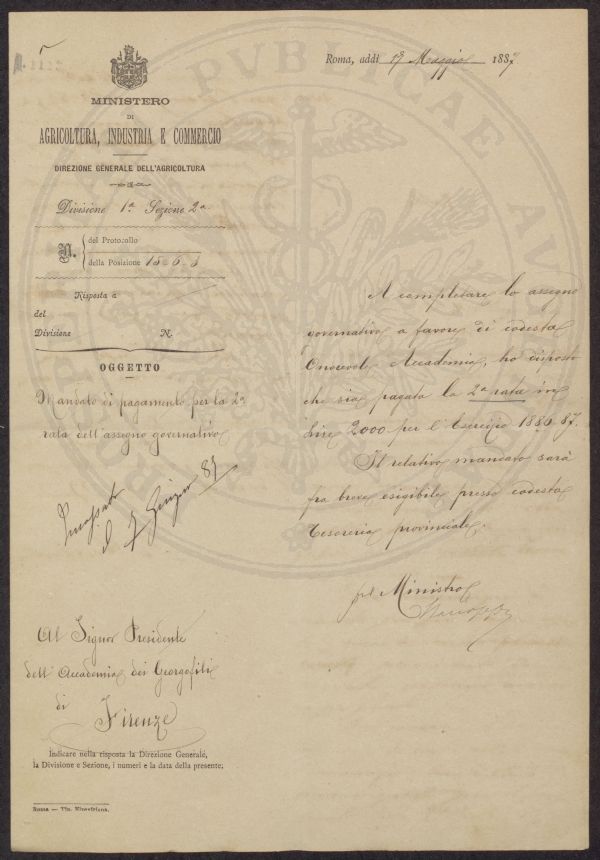 Roma, addì 19 Maggio 1887
MINISTERO
DI
AGRICOLTURA, INDUSTRIA E COMMERCIO
DIREZIONE GENERALE DELL'AGRICOLTURA
Divisione 1ª Sezione 2ª
N. del Protocollo
della Posizione 15-6-3
Risposta a
del
Divisione N.
OGGETTO
Mandato di pagamento per la 2ª
rata dell'assegno governativo
Incassato
il 7 Giugno 87
A completare lo assegno
governativo a favore di codesta
Onorevole Accademia, ho disposto
che sia pagata la 2ª rata in
Lire 2000 per l'Esercizio 1886-87.
Il relativo mandato sarà
fra breve esigibile presso codesta
Tesoreria provinciale.
pel Ministro
Al Signor Presidente
dell'Accademia dei Georgofili
di
Firenze
Indicare nella risposta la Direzione Generale,
la Divisione e Sezione, i numeri e la data della presente.
Roma — Tip. Elzeviriana.
PVBLICAE